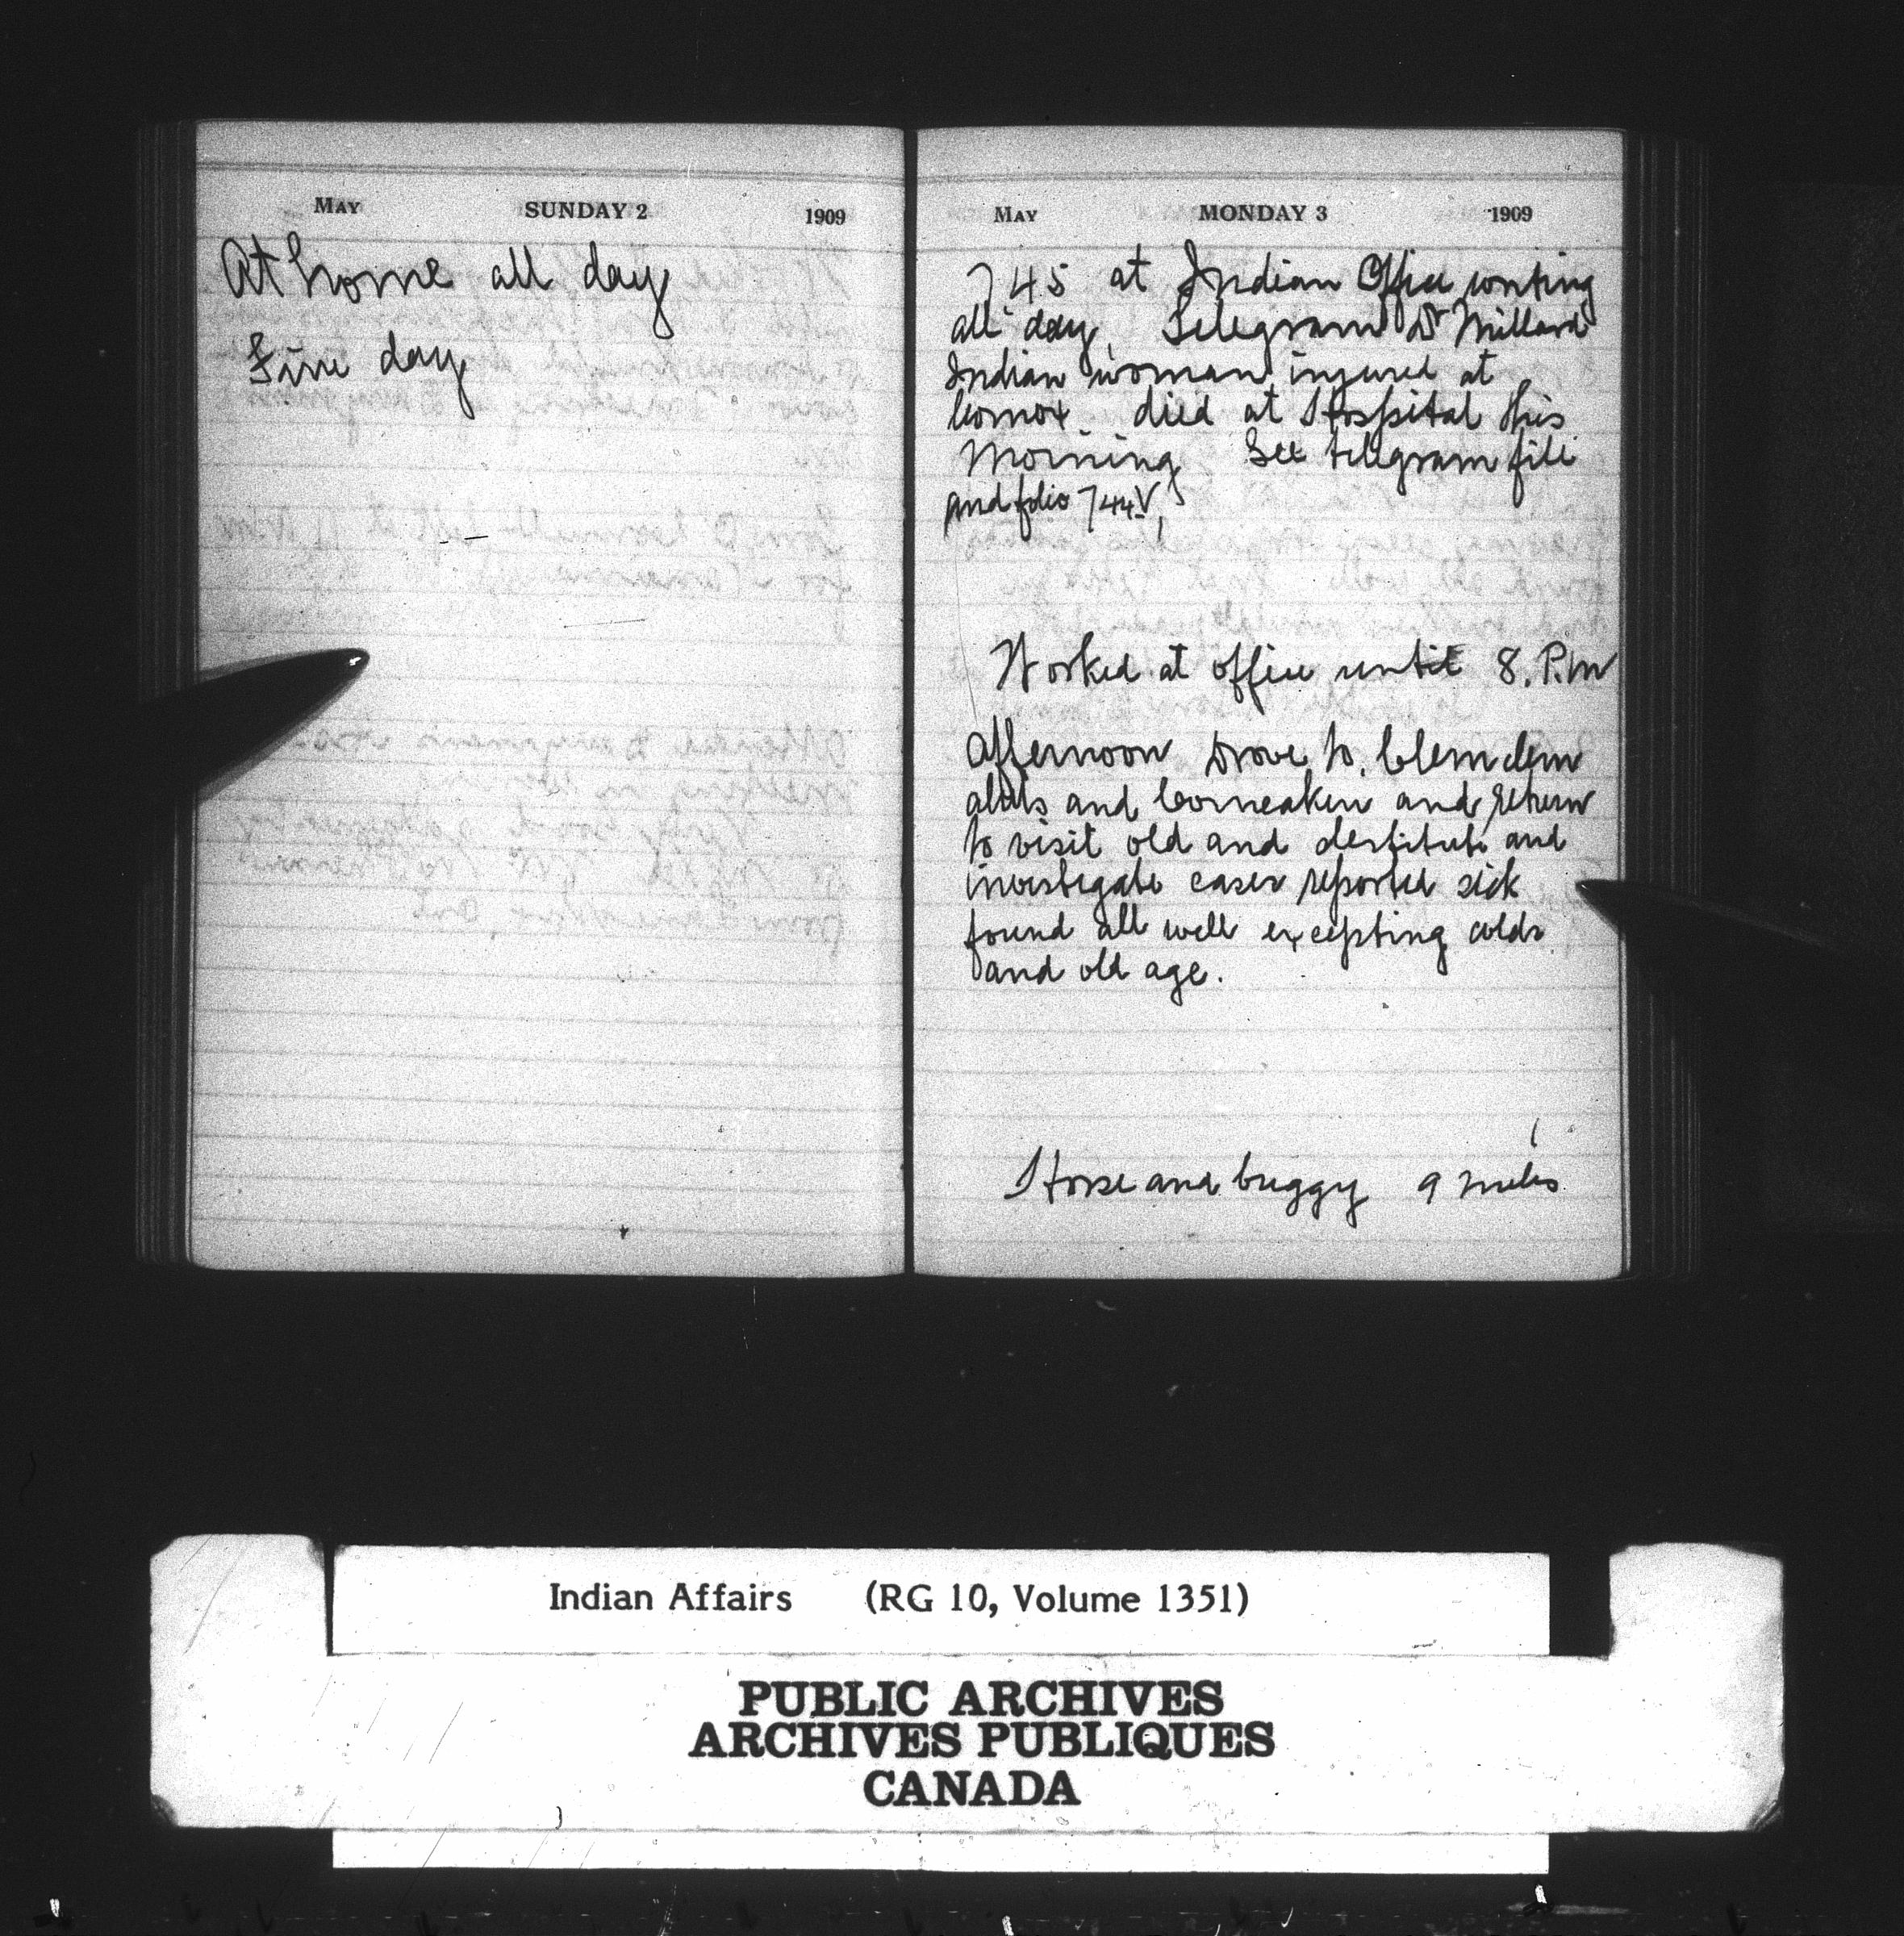 May SUNDAY 2 1909
At home all day
Fine day
May MONDAY 3 1909
7 45 at Indian Office writing
all day, Telegram Dr Millard
Indian woman injured at
Comox died at Hospital this
Morning See telegram file
and folio 744
Worked at office until 8. P.M
Afternoon Drove to, Clemclem
aluts and Comeaken and return
to visit old and destitute and
investigate cases reported sick
found all well excepting colds
and old age.
Horse and buggy 9 miles
Indian Affairs (RG 10, Volume 1351)
PUBLIC ARCHIVES
ARCHIVES PUBLIQUES
CANADA